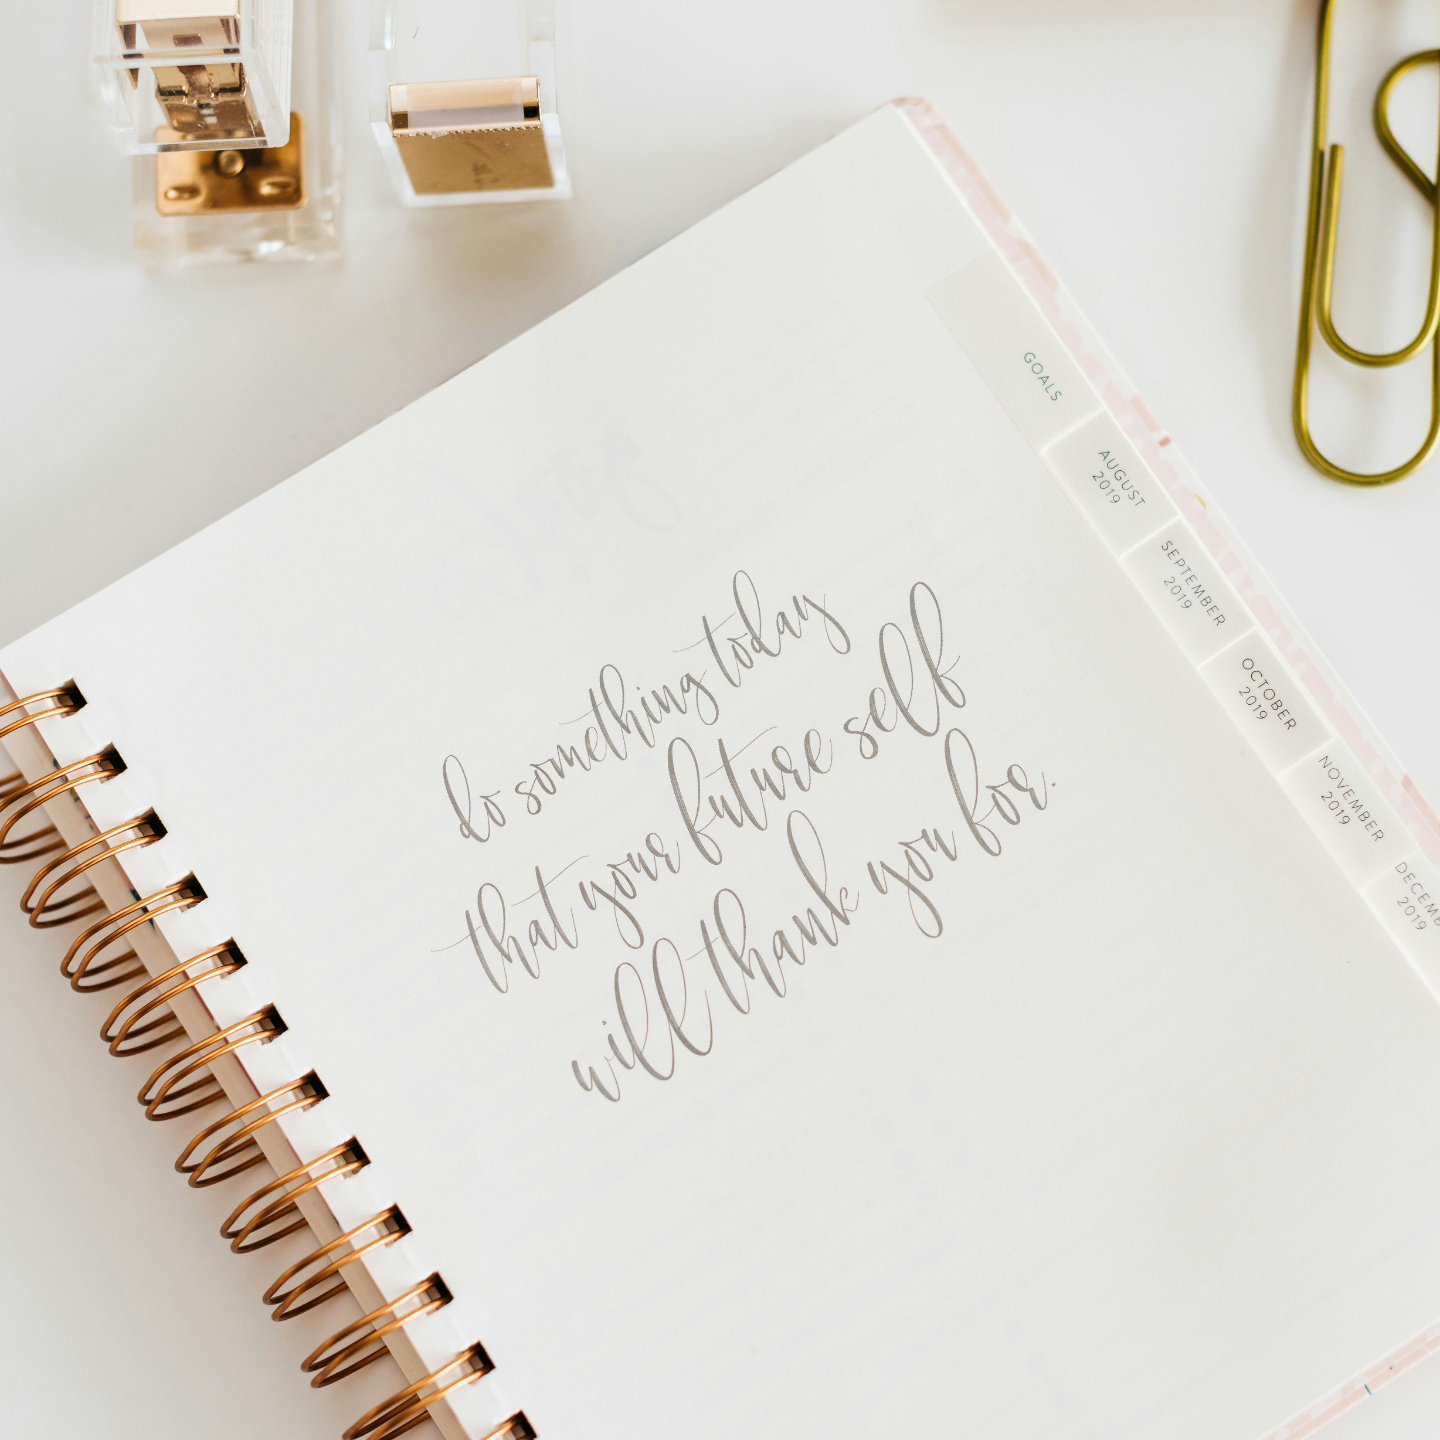 do something today
that your future self
will thank you for.
GOALS
AUGUST
2019
SEPTEMBER
2019
OCTOBER
2019
NOVEMBER
2019
DECEMB
2019